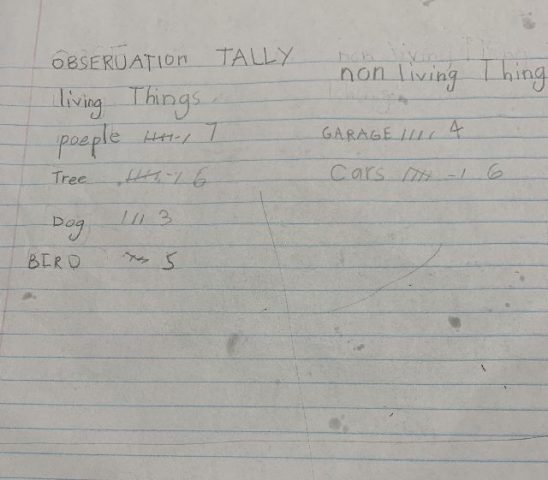 OBSERUATION TALLY
living Things
poeple 7
Tree 6
Dog III 3
BIRD 5
non living Thing
GARAGE IIII 4
Cars 6